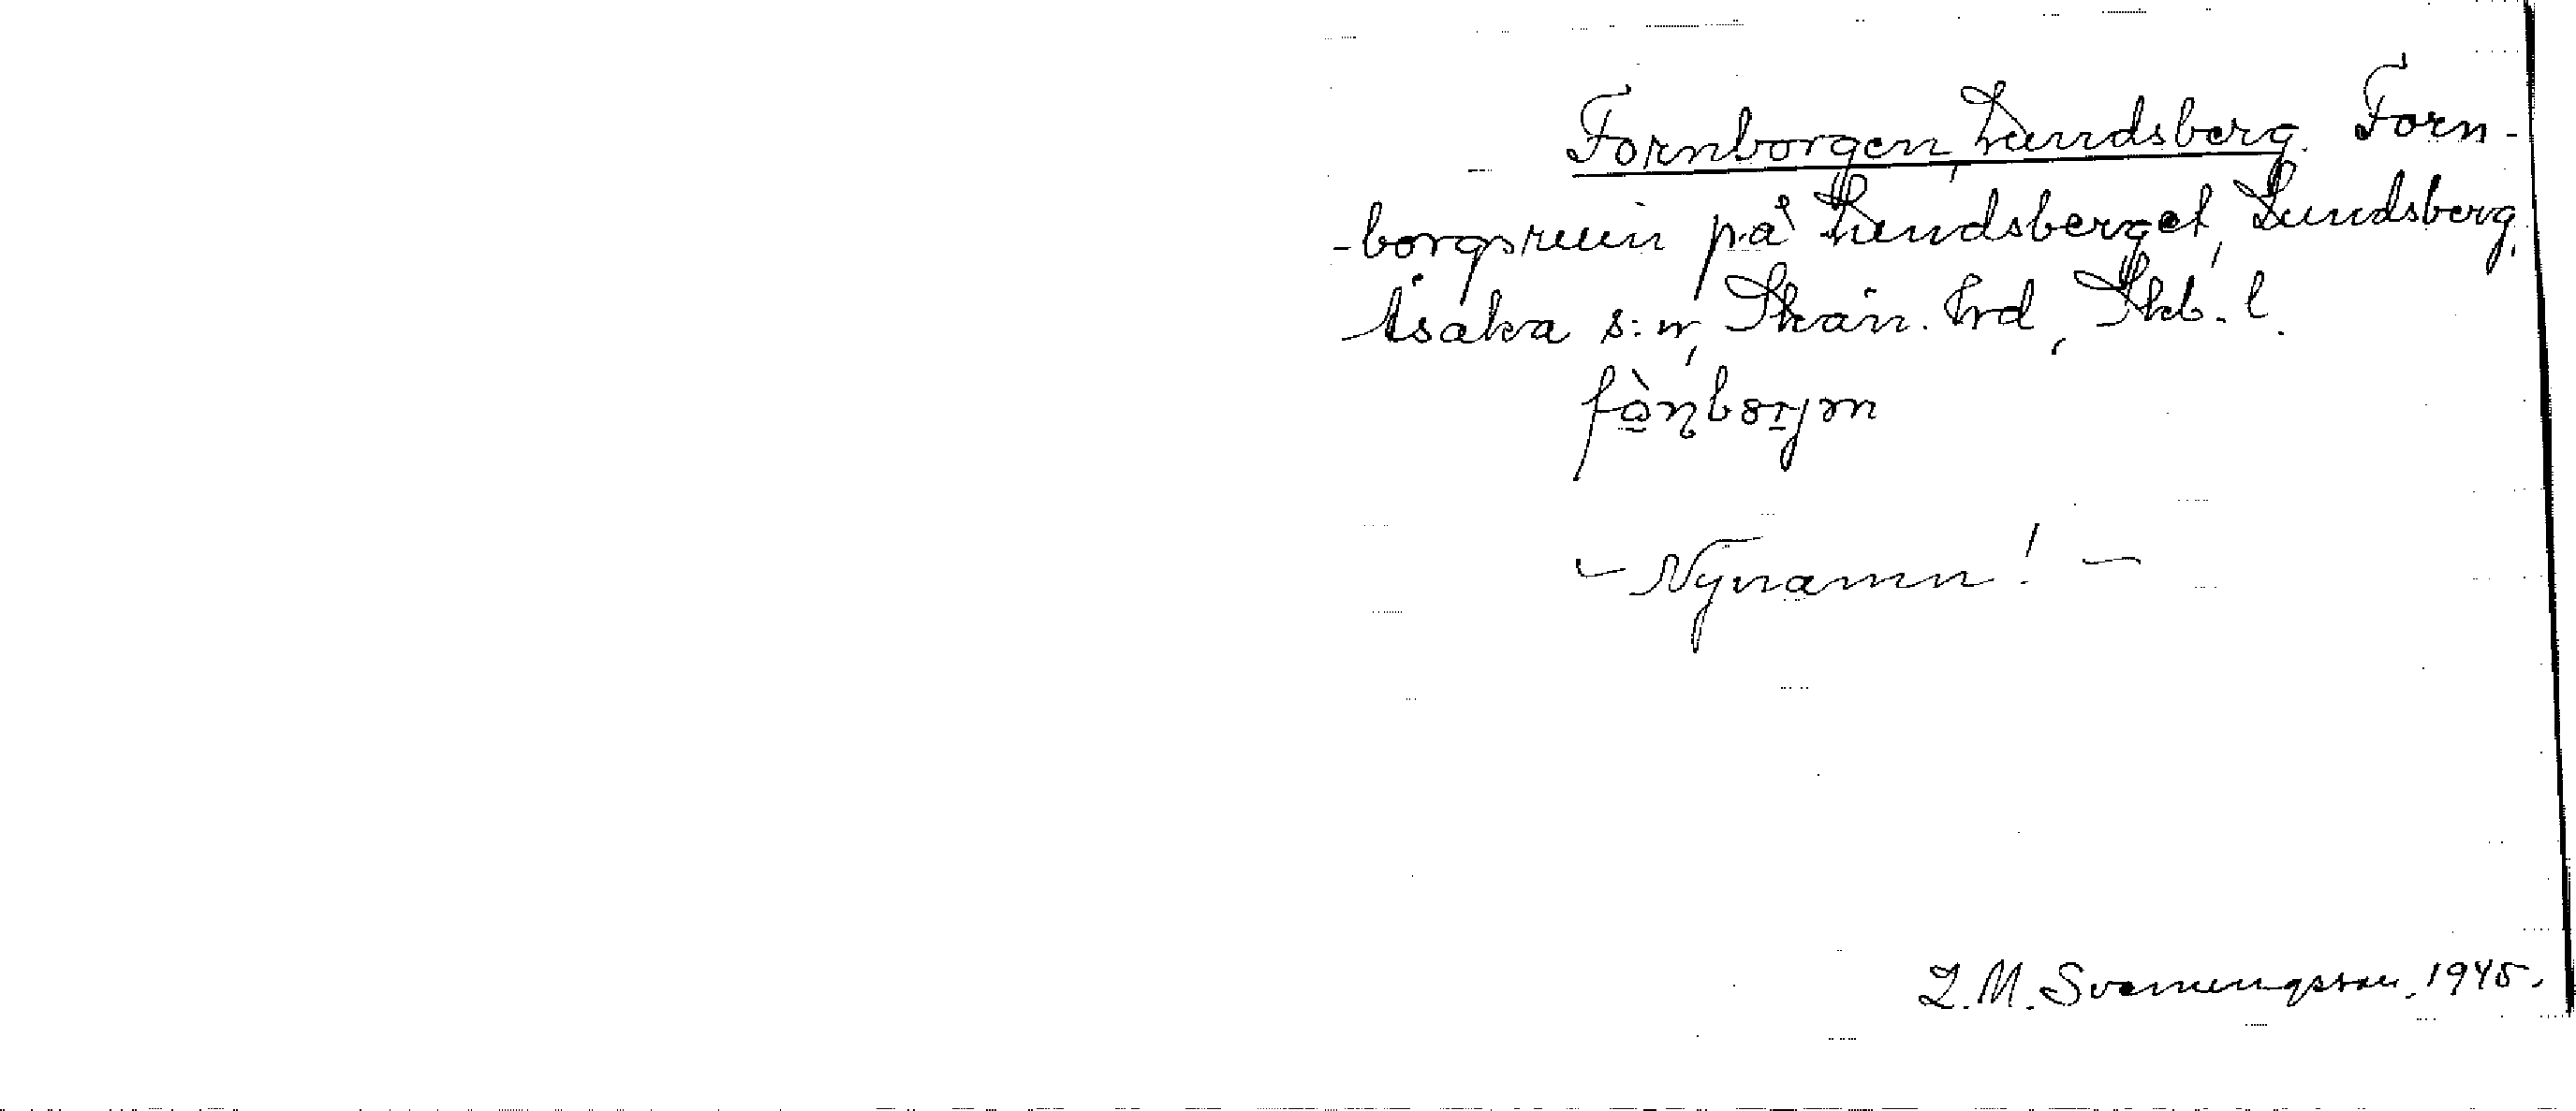 Fornborgen, Lundsberg. Forn-
-borgsruin på Lundsberget, Lundsberg,
Åsaka s:n, Skån. hrd, Skb. l.
fò̱ɳbo̱rjən
- Nynamn! -
L. M. Svenungsson, 1945.